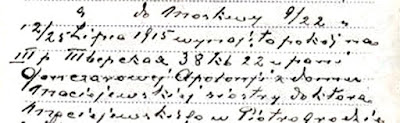 do Moskwy 9/22 „
12/25 Lipca 1915 wynajęto pokój na
III p Тверская 38 кв 22 u pani
Gonczarowej Apolonji z domu
Maciejewskiej siostry doktora
Maciejewskiego w Piotrogrodzie